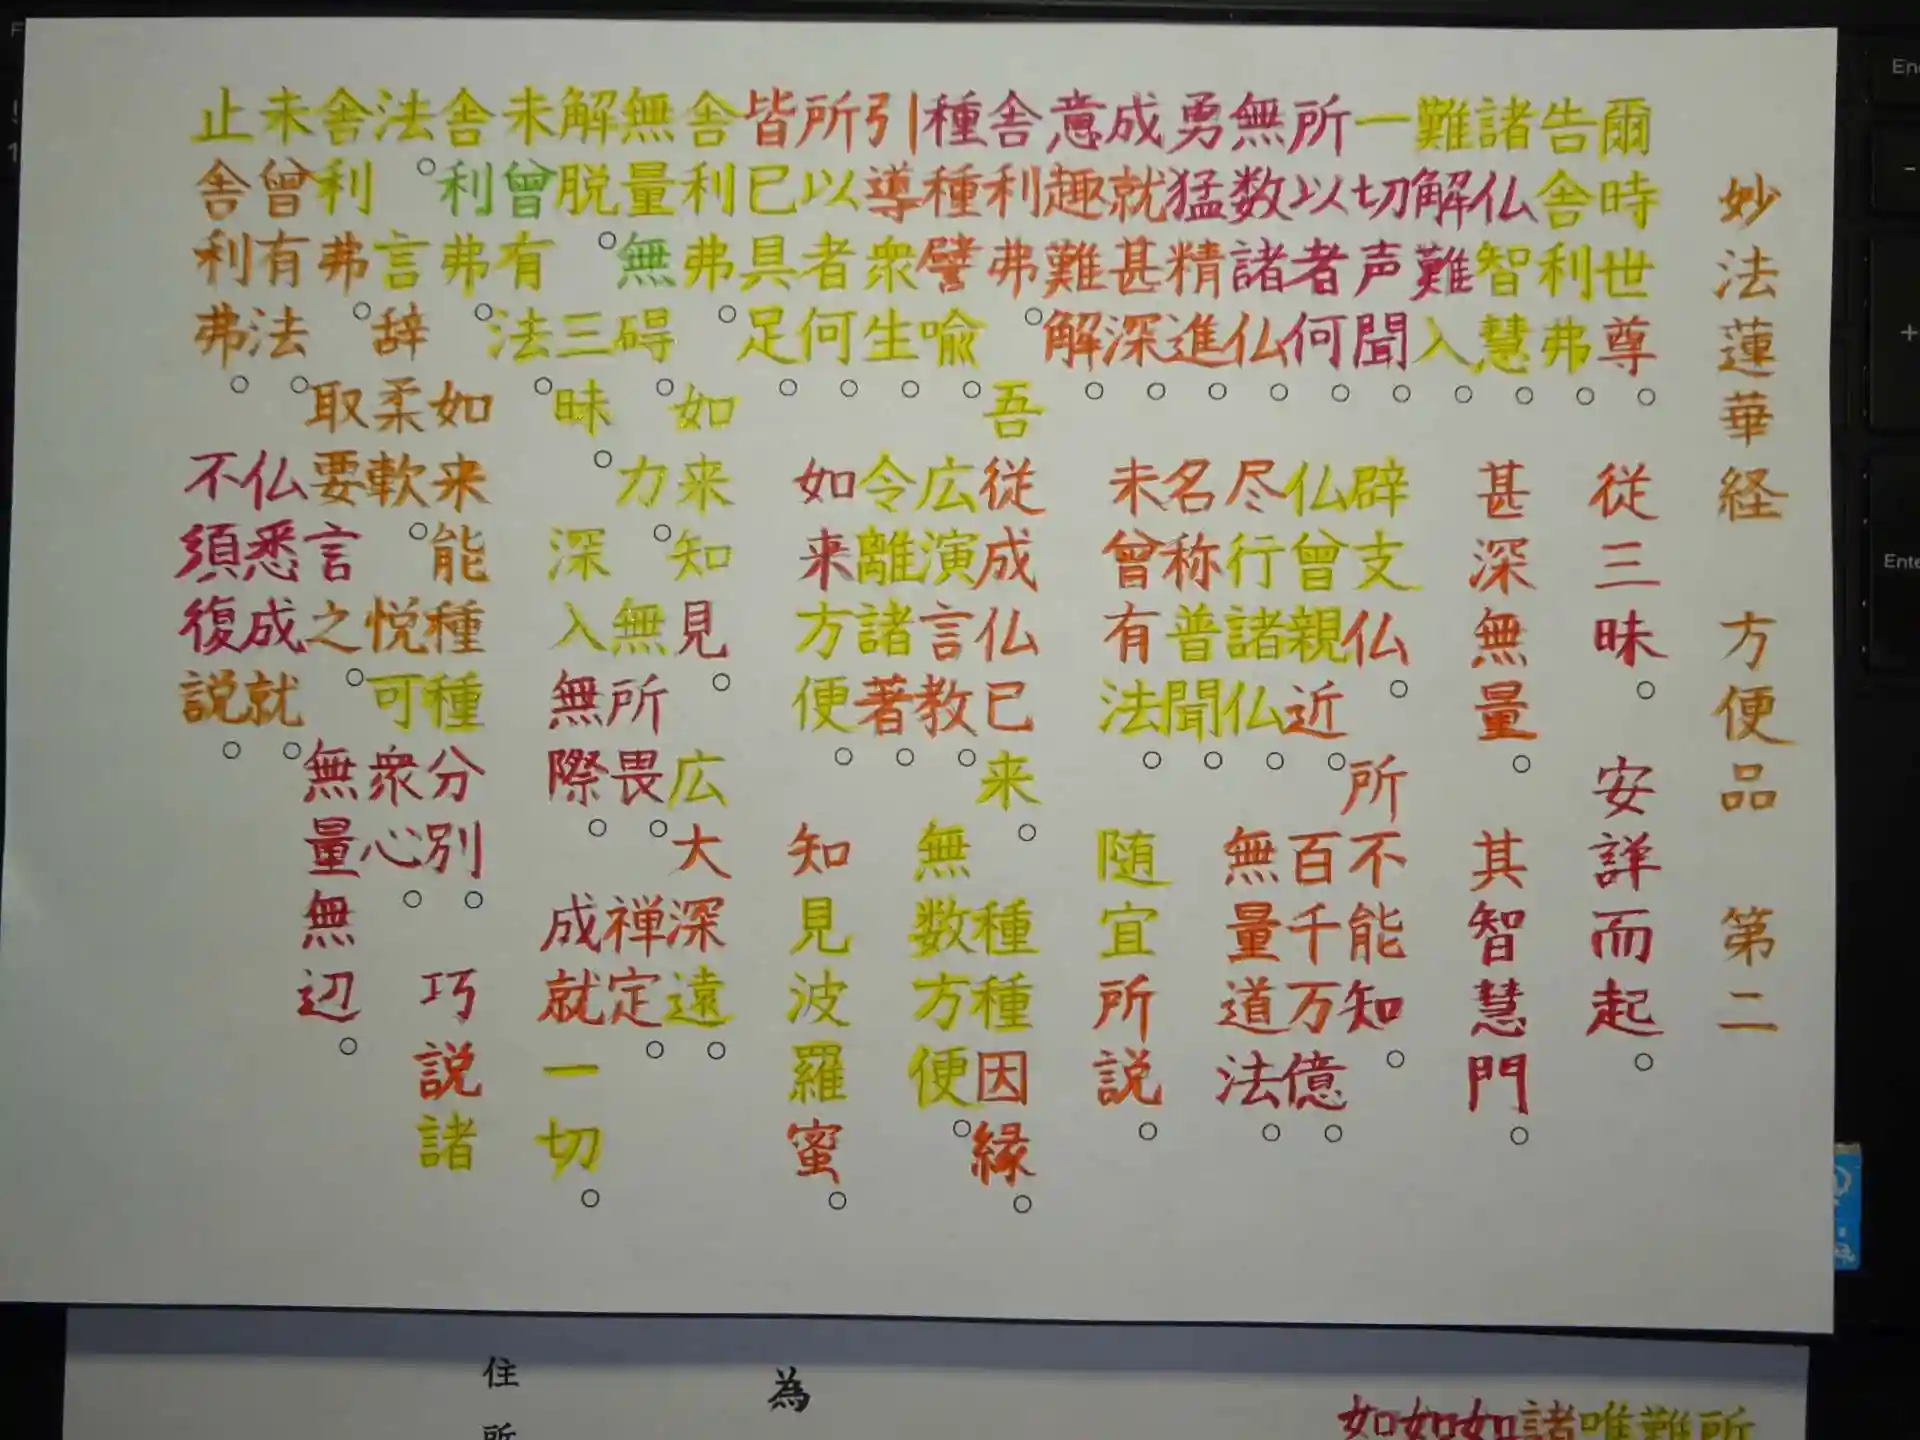 妙法蓮華経　方便品　第二
爾時世尊。従三昧。安詳而起。
告舎利弗。
諸仏智慧。甚深無量。其智慧門。
難解難入。
一切声聞。辟支仏。所不能知。
所以者何。仏曾親近。百千万億
。無数諸仏。尽行諸仏。無量道法。
勇猛精進。名称普聞。
成就甚深。未曾有法。随宜所説。
意趣難解。
舎利弗。吾従成仏已来。種種因縁。
種種譬喩。広演言教。無数方便。
引導衆生。令離諸著。
所以者何。如来方便。知見波羅蜜。
皆已具足。
舎利弗。如来知見。広大深遠。
無量無碍。力。無所畏。禅定。
解脱。三昧。深入無際。成就一切。
未曾有法。
舎利弗。如来能種種分別。巧説諸
法。言辞柔軟。悦可衆心。
舎利弗。取要言之。無量無辺。
未曾有法。仏悉成就。
止舎利弗。不須復説。
所
難
唯
諸
如
如
如
為
住所